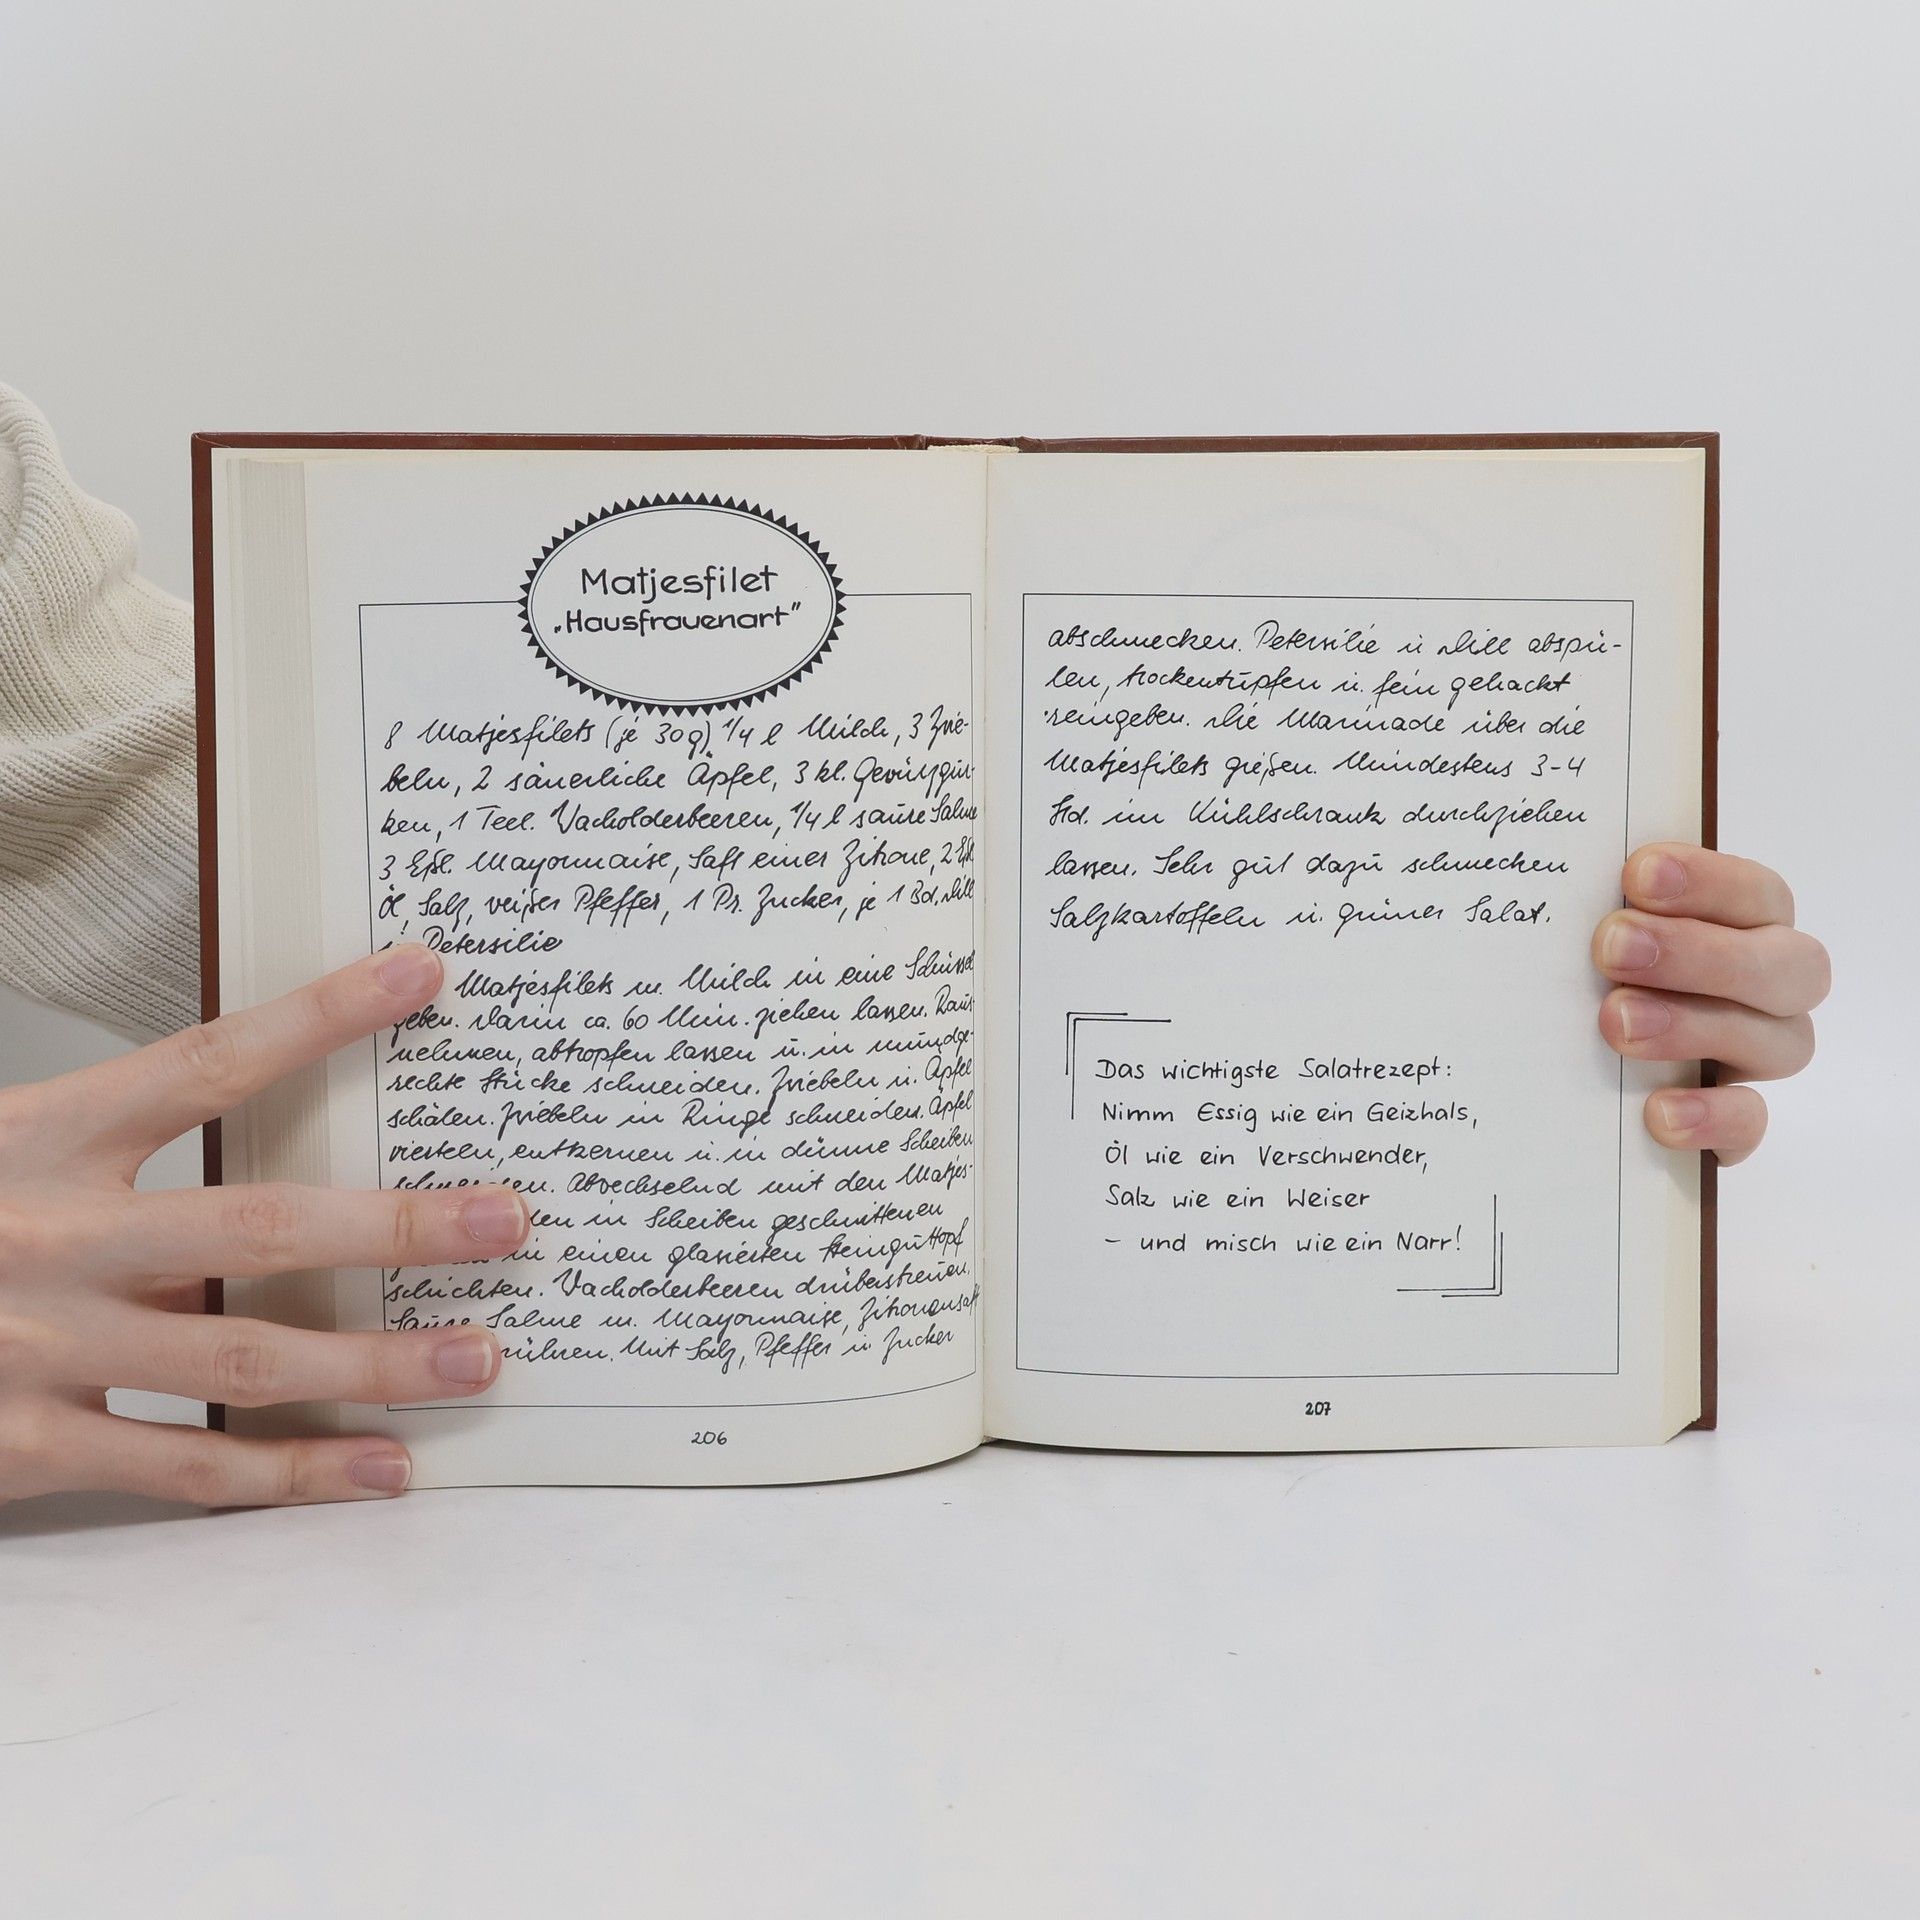 Matjesfilet
„Hausfrauenart"
8 Matjesfilets (je 30g), 1/4 l Milch, 3 Zwie-
beln, 2 säuerliche Äpfel, 3 kl. Gewürzgur-
ken, 1 Teel. Wacholderbeeren, 1/4 l saure Sahne
3 Eßl. Mayonnaise, Saft einer Zitrone, 2 Eßl.
Öl, Salz, weißer Pfeffer, 1 Pr. Zucker, je 1 Bd. Dill
Petersilie
Matjesfilets m. Milch in eine Schüssel
geben. Darin ca. 60 Min. ziehen lassen. Raus-
nehmen, abtropfen lassen u. in mundge-
rechte Stücke schneiden. Zwiebeln u. Äpfel
schälen. Zwiebeln in Ringe schneiden. Äpfel
vierteln, entkernen u. in dünne Scheiben
schneiden. Abwechselnd mit den Matjes-
den in Scheiben geschnittenen
in einen glasierten Steinguttopf
schichten. Wacholderbeeren drüberstreuen.
Saure Sahne m. Mayonnaise, Zitronensaft
rühren. Mit Salz, Pfeffer u. Zucker
206
abschmecken. Petersilie u. Dill abspü-
len, trockentupfen u. fein gehackt
reingeben. Die Marinade über die
Matjesfilets gießen. Mindestens 3-4
Std. im Kühlschrank durchziehen
lassen. Sehr gut dazu schmecken
Salzkartoffeln u. grüner Salat.
Das wichtigste Salatrezept:
Nimm Essig wie ein Geizhals,
Öl wie ein Verschwender,
Salz wie ein Weiser
- und misch wie ein Narr!
207